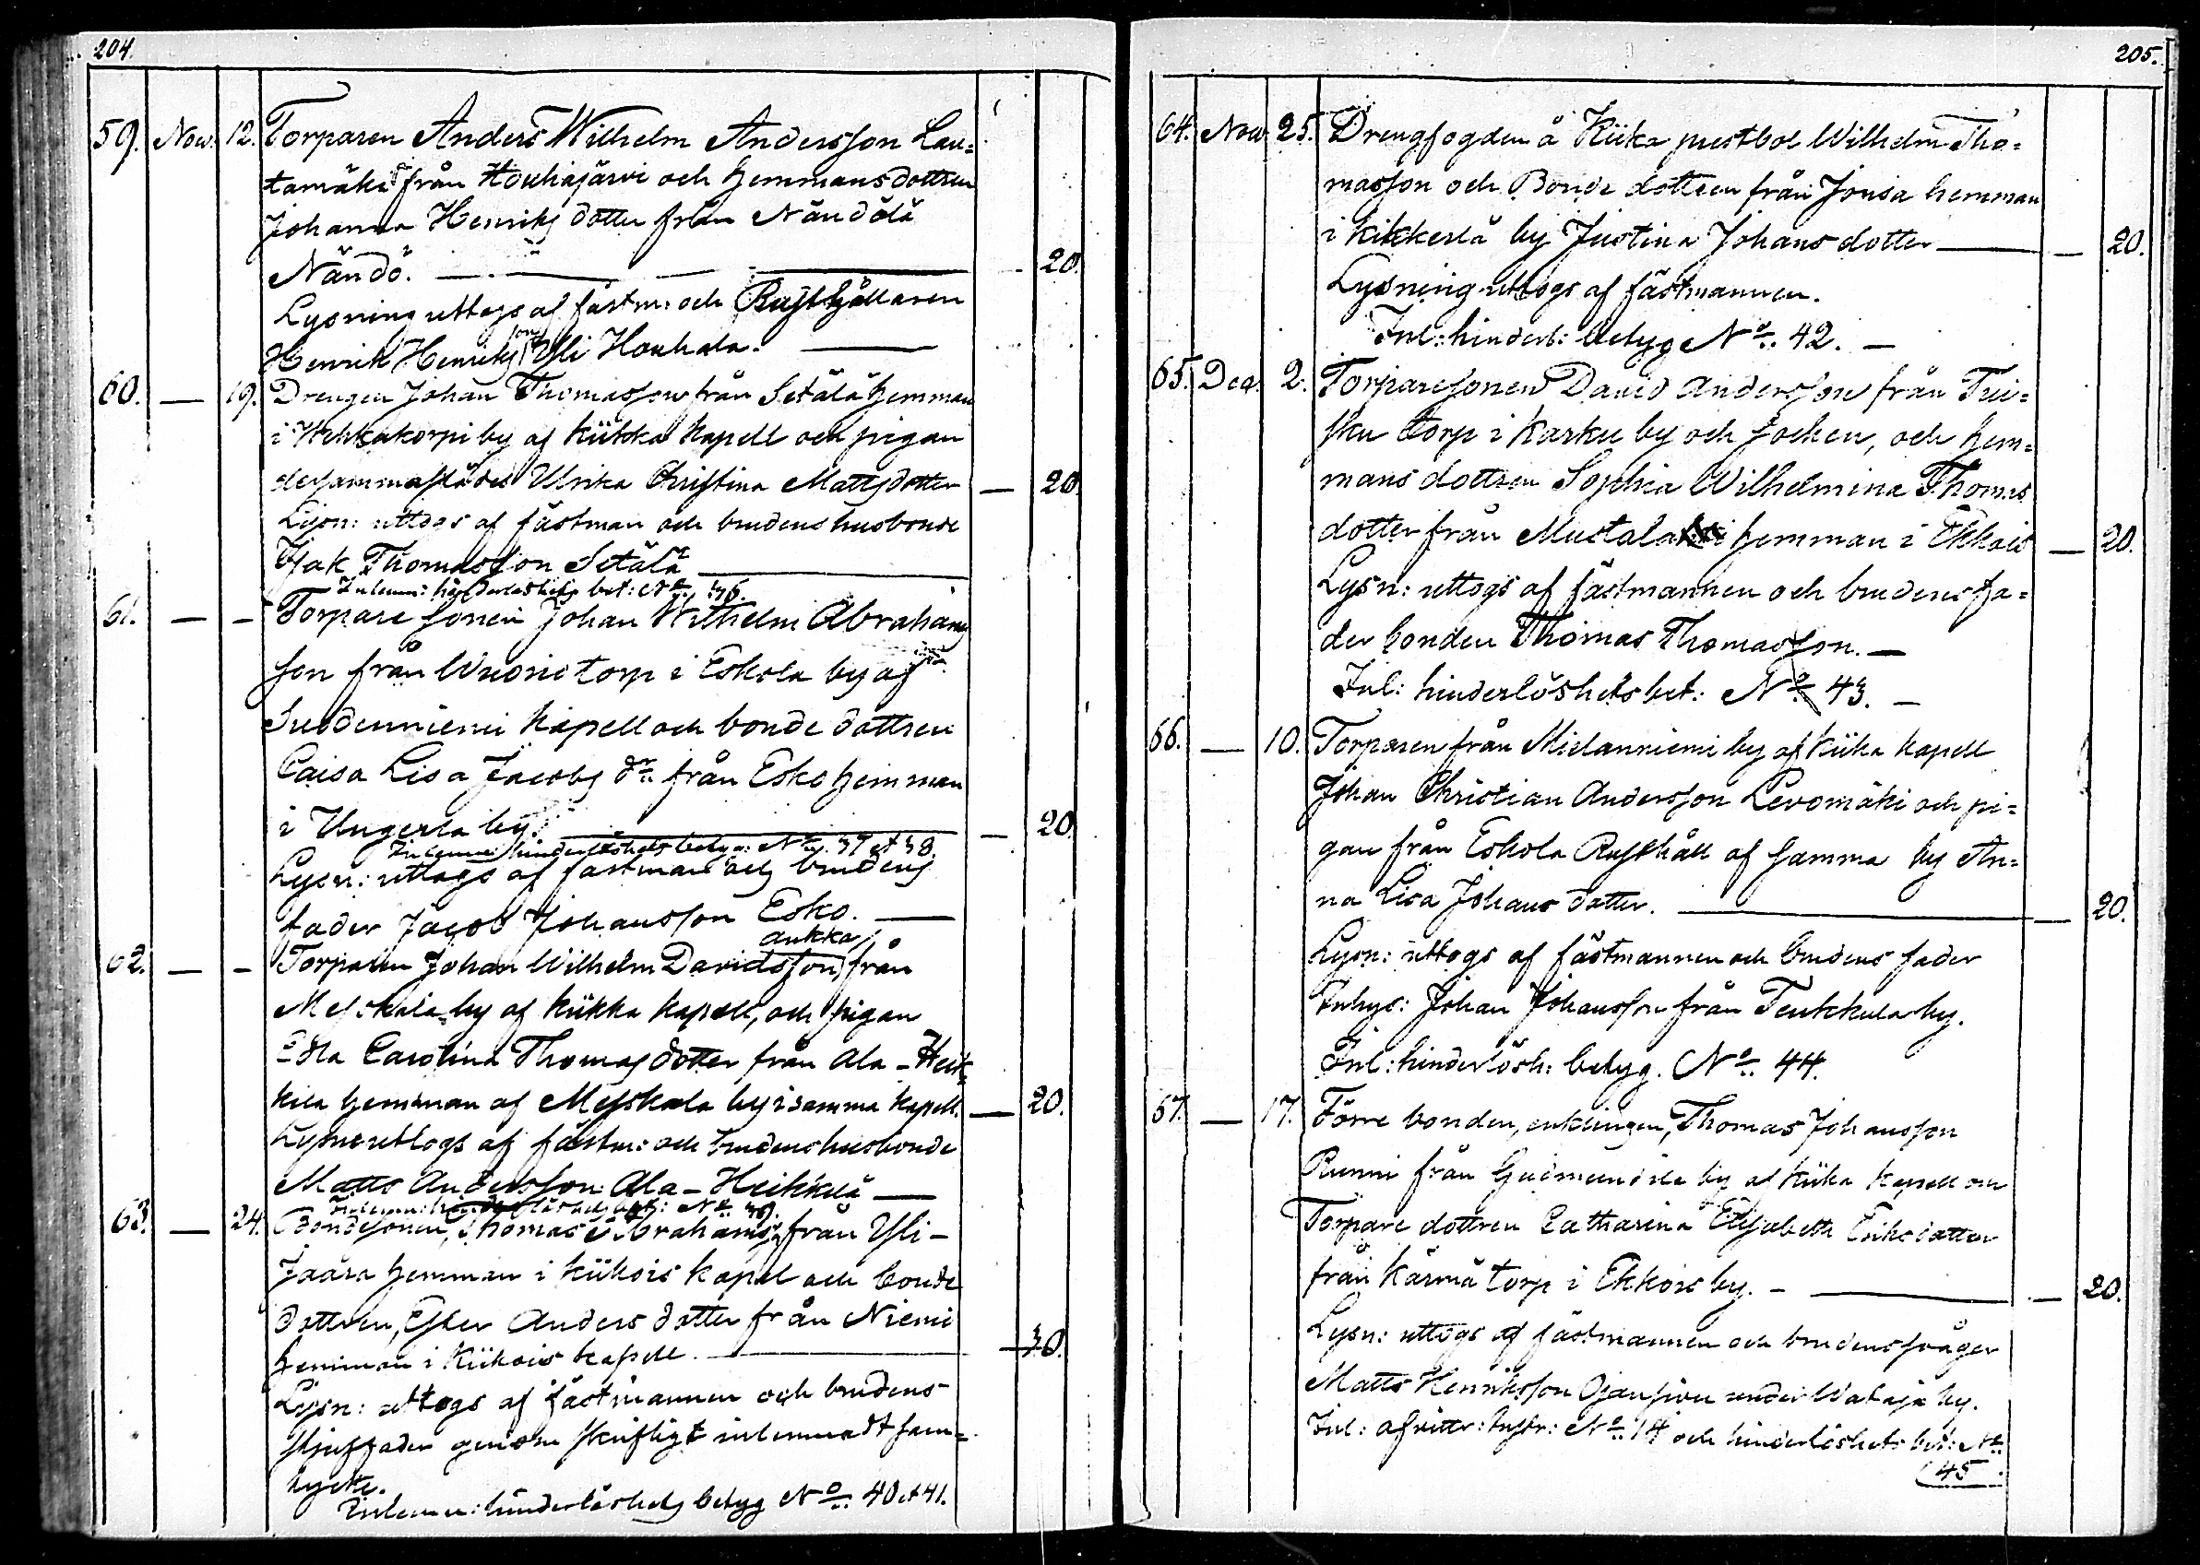 204.
59. Nov. 12. Torparen Anders Wilhelm Andersson Lau=
tamäki från Houhajärvi och hemmansdottren
Johanna Henriks dotter från Nändölä
Nändö. 20.
Lysning uttogs af fästm: och Rusthållaren
Henrik Henriks son Yli Houhala.
60. — 19. Drengen Johan Thomasson från Setälä hemman
i Wehkakorpi by af Kiikka Kapell och pigan
dersammastädes Ulrika Christina Mattsdotter — 20.
Lysn: uttogs af fästman och brudens husbonde
Isak Thomasson Setälä
Inlemn: hinderlöshets bet: No 36.
61. — – Torpare sonen Johan Wilhelm Abrahams
son från Wuorio torp i Eskola by af
Suodenniemi Kapell och bonde dottren
Caisa Lisa Jacobs dr från Esko hemman
i Ungerla by. — 20.
Inlemn: hinderlöshets betyg: No 37 et 38
Lysn: uttogs af fästman och brudens
fader Jacob Johansson Esko.
62. — – Torparen Johan Wilhelm Davidsson Aukka från
Meskala by af Kiikka Kapell, och pigan
Edla Carolina Thomas dotter från Ala-Heik
kilä hemman af Meskala by i samma Kapell. — 20.
Lysn: uttogs af fästm: och brudens husbonde
Matts Andersson Ala-Heikkilä
Inlemn: hinderlöshets bet: No 39.
63. — 24. Bondesonen, Thomas Abrahamsson från Yli-
Jaara hemman i Kiikois kapel och bonde
dottren, Ester Anders dotter från Niemi
hemman i Kiikois kapell. 30.
Lysn: uttogs af fästmannen och brudens
stjuffader genom skriftligt inlemnadt sam=
tycke.
Inlemn: hinderlöshets betyg No 40 et 41.
205.
64. Nov. 25. Drengfogden å Kiika prestbol Wilhelm Tho=
masson och Bonde dottren från Jonsa hemman
i Kikkerlä by Justina Johans dotter — 20.
Lysning uttogs af fästmannen.
Inl: hinderl: betyg No 42. —
65. Dec. 2. Torparesonen David Andersson från Tui=
sku torp i Karku by och Socken, och hem=
mans dottren Sophia Wilhelmina Thomas
dotter från Mustala hemman i Ekkois — 20.
Lysn: uttogs af fästmannen och brudens fa=
der bonden Thomas Thomasson. —
Inl: hinderlöshets bet: No 43. —
66. — 10. Torparen från Mielanniemi by af Kiika kapell
Johan Christian Andersson Levomäki och pi=
gan från Eskola Rusthåll af samma by An=
na Lisa Johans dotter. — 20.
Lysn: uttogs af fästmannen och brudens fader
Inhys: Johan Johansson från Teukkula by.
Inl: hinderlösh: betyg. No 44.
67. — 17. Förre bonden, enklingen, Thomas Johansson
Runni från Gudmundila by af Kiika Kapell och
Torpare dottren Catharina Elisabeth Eriksdotter
från Kärmä torp i Ekkois by. — 20.
Lysn: uttogs af fästmannen och brudens svåger
Matts Henriksson Ojansivu under Wataja by.
Inl: afvittr: Instr: No 14 och hinderlöshets bet: No
45.